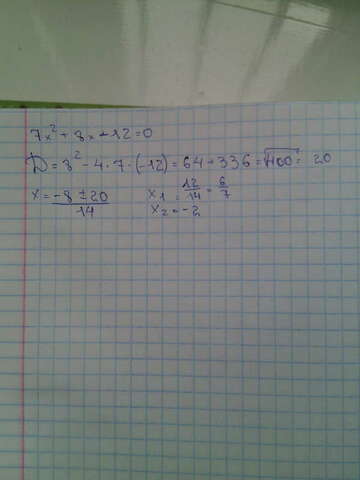 7x² + 8x + 12 = 0
D = 8² - 4 · 7 · (-12) = 64 + 336 = √400 = 20
x = (-8 ± 20)/14    x₁ = 12/14 = 6/7
x₂ = -2